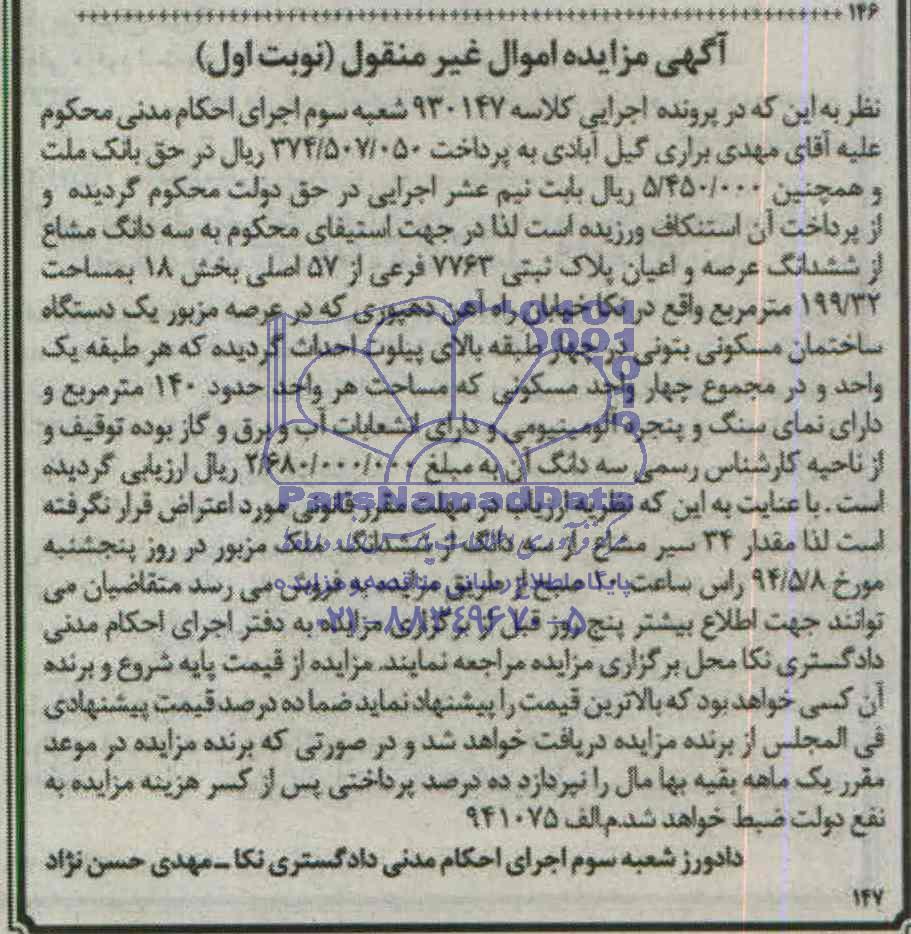 ۱۴۶
آگهی مزایده اموال غیر منقول (نوبت اول)
نظر به این که در پرونده اجرایی کلاسه ۹۳۰۱۴۷ شعبه سوم اجرای احکام مدنی محکوم
علیه آقای مهدی براری گیل آبادی به پرداخت ۳۷۴/۵۰۷/۰۵۰ ریال در حق بانک ملت
و همچنین ۵/۴۵۰/۰۰۰ ریال بابت نیم عشر اجرایی در حق دولت محکوم گردیده و
از پرداخت آن استنکاف ورزیده است لذا در جهت استیفای محکوم به سه دانگ مشاع
از ششدانگ عرصه و اعیان پلاک ثبتی ۷۷۶۳ فرعی از ۵۷ اصلی بخش ۱۸ بمساحت
۱۹۹/۳۲ مترمربع واقع در نکا خیابان راه آهن دهپوری که در عرصه مزبور یک دستگاه
ساختمان مسکونی بتونی در چهار طبقه بالای پیلوت احداث گردیده که هر طبقه یک
واحد و در مجموع چهار واحد مسکونی که مساحت هر واحد حدود ۱۴۰ مترمربع و
دارای نمای سنگ و پنجره آلومینیومی و دارای انشعابات آب و برق و گاز بوده توقیف و
از ناحیه کارشناس رسمی سه دانگ آن به مبلغ ۲/۶۸۰/۰۰۰/۰۰۰ ریال ارزیابی گردیده
ParsNamadData
است. با عنایت به این که نظریه ارزیاب در مهلت مقرر قانونی مورد اعتراض قرار نگرفته
است لذا مقدار ۳۴ سیر مشاع از سه دانگ از ششدانگ ملک مزبور در روز پنجشنبه
مورخ ۹۴/۵/۸ راس ساعت ۱۰ صبح از طریق مزایده به فروش می رسد متقاضیان می
پایگاه اطلاع رسانی مناقصه و مزایده
۰۲۱-۸۸۳۴۹۶۷۰-۵
توانند جهت اطلاع بیشتر پنج روز قبل از برگزاری مزایده به دفتر اجرای احکام مدنی
دادگستری نکا محل برگزاری مزایده مراجعه نمایند. مزایده از قیمت پایه شروع و برنده
آن کسی خواهد بود که بالاترین قیمت را پیشنهاد نماید ضما ده درصد قیمت پیشنهادی
فی المجلس از برنده مزایده دریافت خواهد شد و در صورتی که برنده مزایده در موعد
مقرر یک ماهه بقیه بها مال را نپردازد ده درصد پرداختی پس از کسر هزینه مزایده به
نفع دولت ضبط خواهد شد.م/الف ۹۴۱۰۷۵
دادورز شعبه سوم اجرای احکام مدنی دادگستری نکا ـ مهدی حسن نژاد
۱۴۷